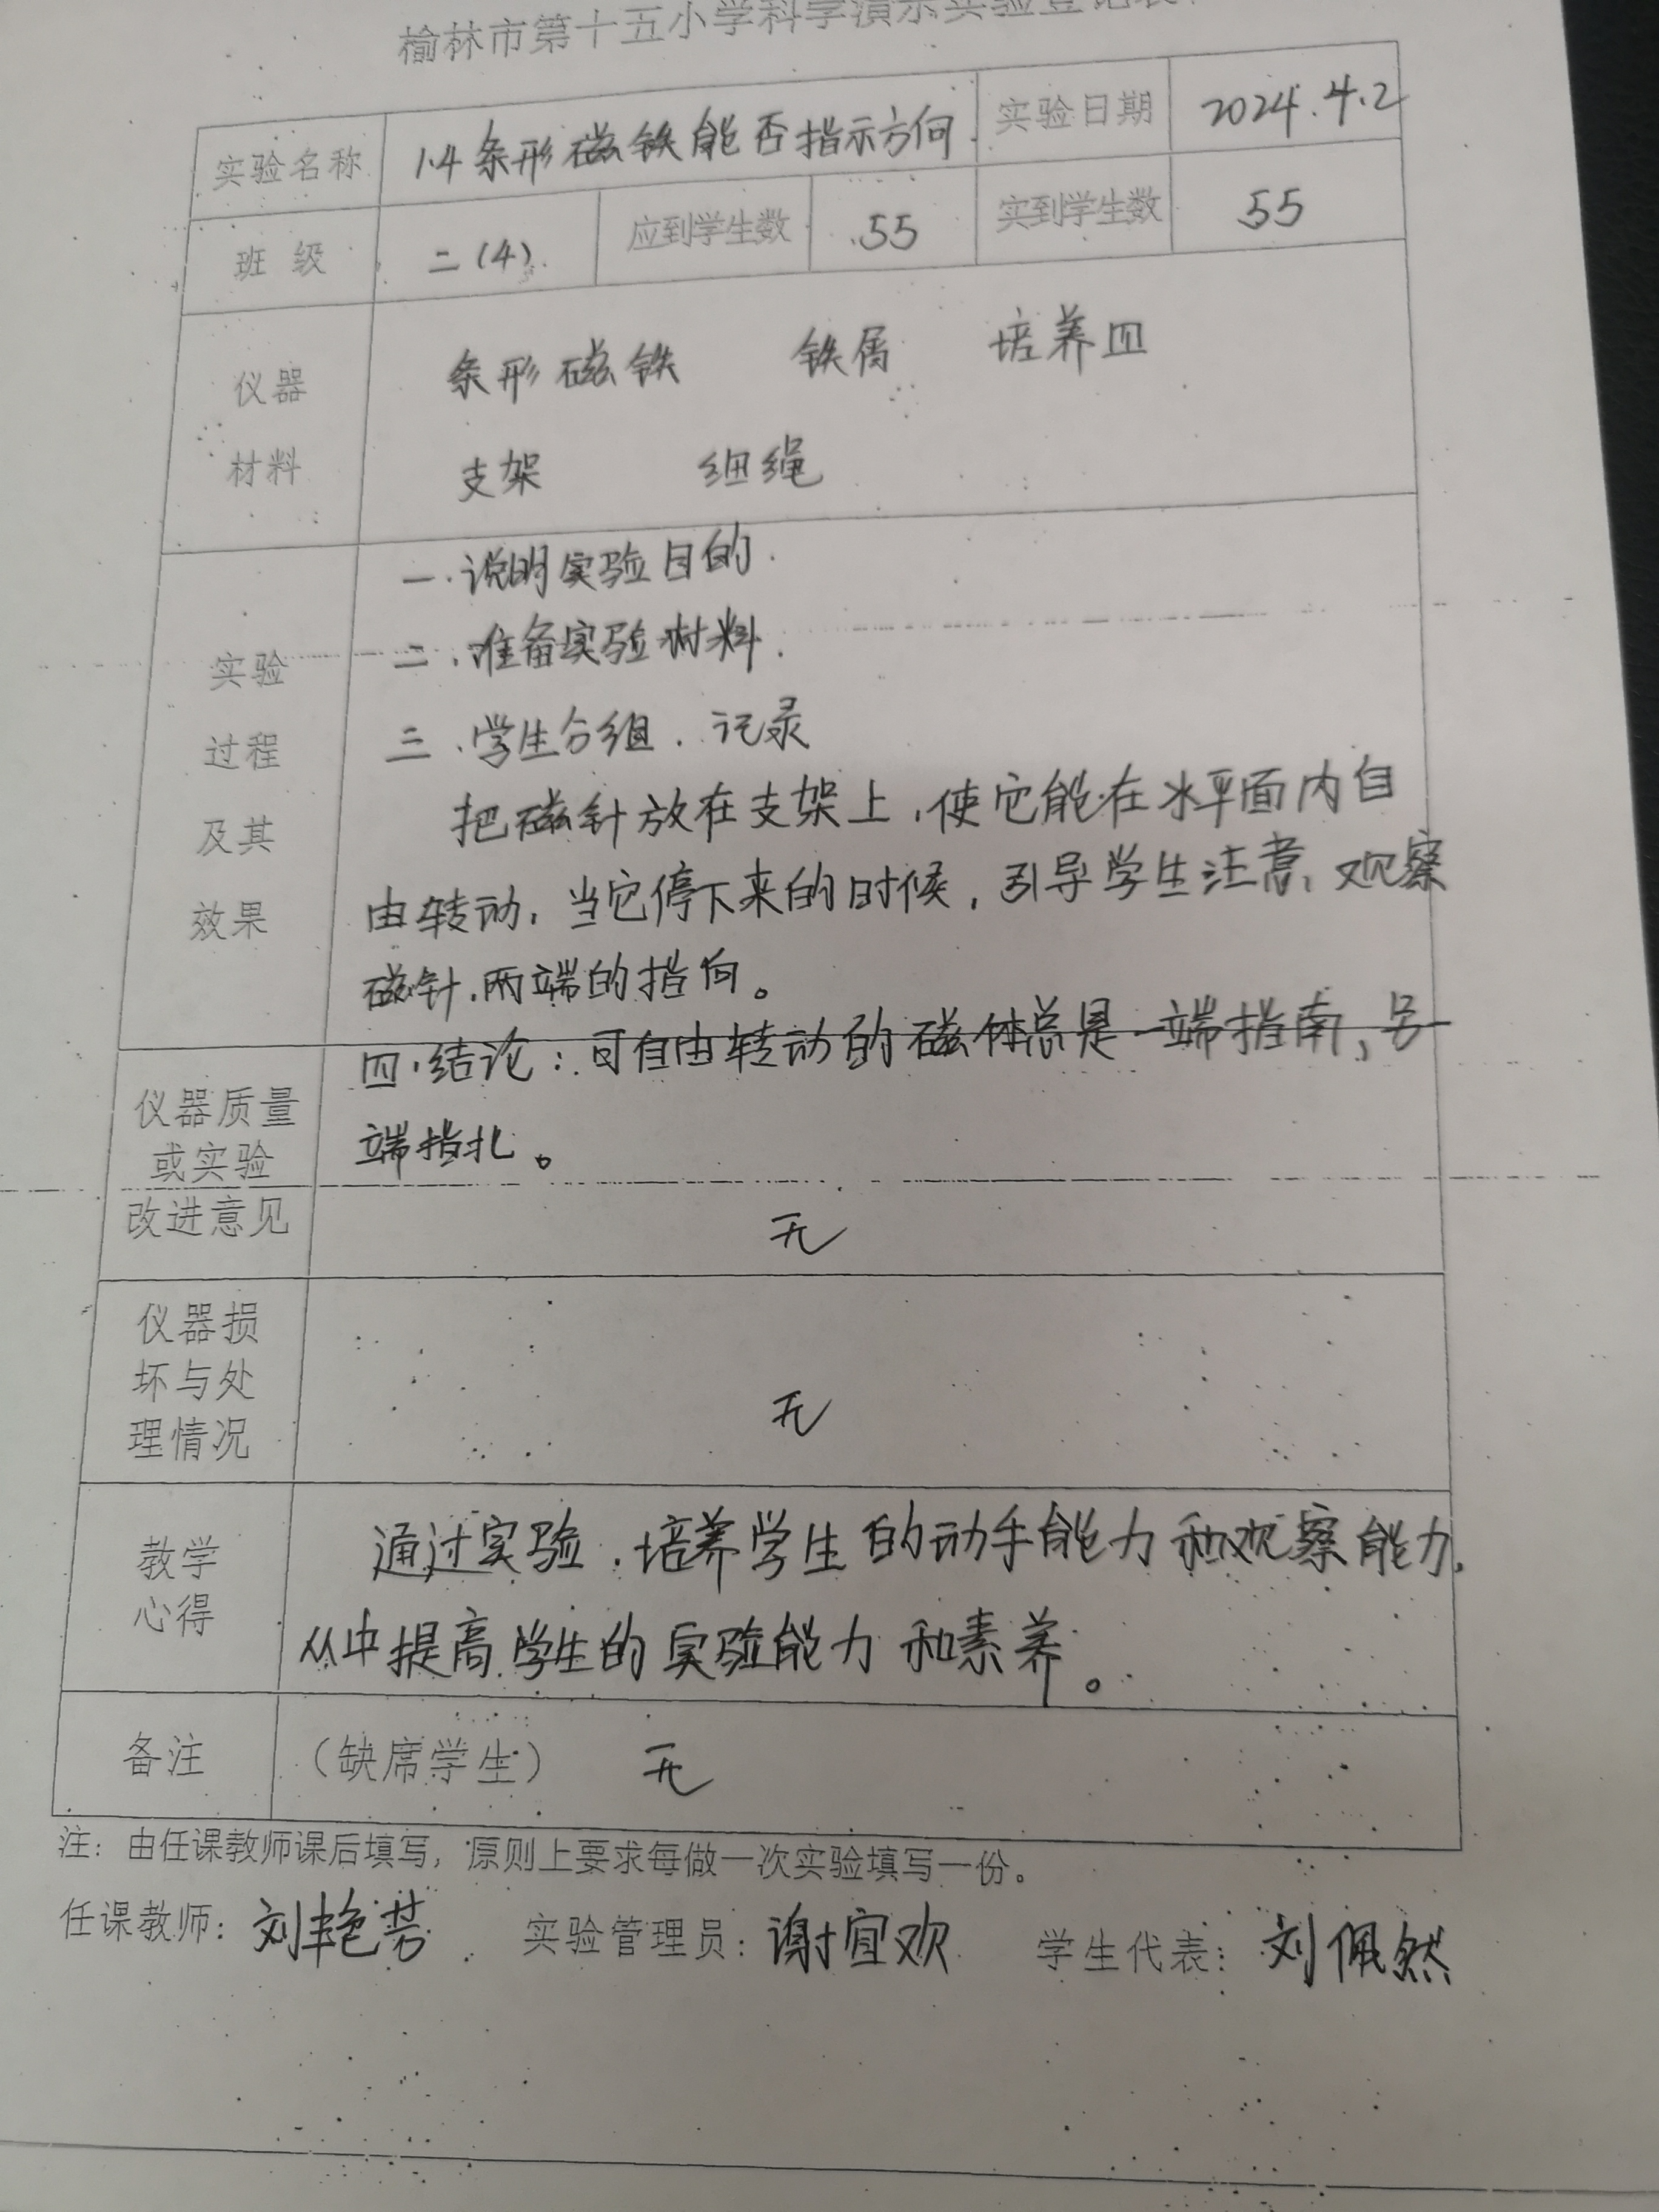 榆林市第十五小学科学演示实验登记表
实验名称 1.4条形磁铁能否指示方向. 实验日期 2024.4.2
班 级 二(4). 应到学生数 55 实到学生数 55
仪器 条形磁铁 铁屑 培养皿
材料 支架 细绳
一.说明实验目的.
实验 二.准备实验材料.
过程 三.学生分组.记录
及其 把磁针放在支架上,使它能在水平面内自
效果 由转动,当它停下来的时候,引导学生注意、观察
磁针.两端的指向。
四.结论:可自由转动的磁体总是一端指南,另一
仪器质量
或实验 端指北。
改进意见 无
仪器损
坏与处
理情况 无
教学 通过实验.培养学生的动手能力和观察能力,
心得 从中提高学生的实验能力和素养。
备注 (缺席学生) 无
注:由任课教师课后填写,原则上要求每做一次实验填写一份。
任课教师:刘艳芳 实验管理员:谢宜欢 学生代表:刘佩然